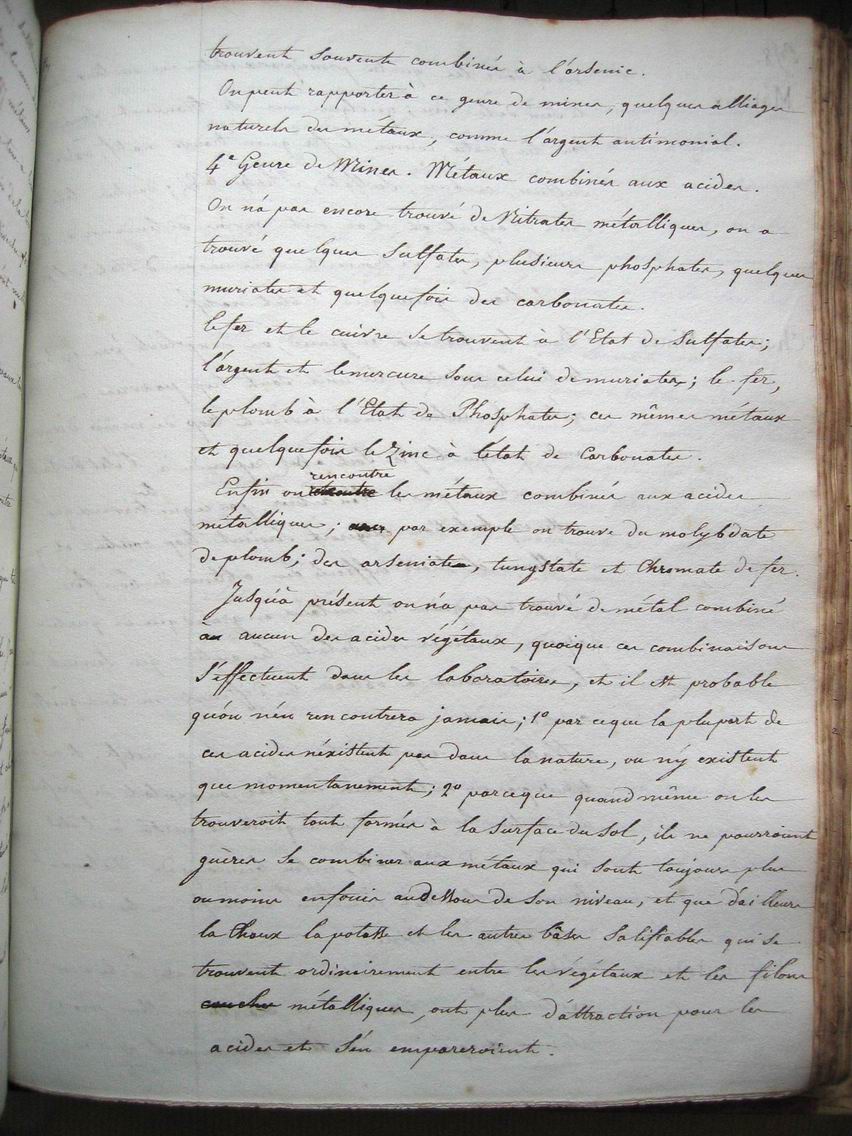 trouvent souvent combinés à l'arsenic.
On peut rapporter à ce genre de mines, quelques alliages
naturels des métaux, comme l'argent antimonial.
4e Genre de Mines. Métaux combinés aux acides.
On n'a pas encore trouvé de Nitrates métalliques, on a
trouvé quelques sulfates, plusieurs phosphates, quelques
muriates et quelquefois des carbonates.
le fer et le cuivre se trouvent à l'Etat de Sulfates;
l'argent et le mercure sous celui de muriates; le fer,
le plomb à l'Etat de Phosphates; ces mêmes métaux
et quelquefois le Zinc à l'état de Carbonates.
rencontre
Enfin on les métaux combinés aux acides
métalliques; par exemple on trouve du molybdate
de plomb; des arseniates, tungstate et Chromate de fer.
Jusqu'à présent on n'a pas trouvé de métal combiné
à aucun des acides végétaux, quoique ces combinaisons
s'effectuent dans les laboratoires, et il est probable
qu'on n'en rencontrera jamais; 1° par ce que la plupart de
ces acides n'existent pas dans la nature, ou n'y existent
que momentanement; 2° parceque quand même on les
trouveroit tout formés à la surface du sol, ils ne pourroient
guères se combiner aux métaux qui sont toujours plus
ou moins enfouis audessous de son niveau, et que d'ailleurs
la Chaux la potasse et les autres bâses salifiables qui se
trouvent ordinairement entre les végétaux et les filons
métalliques, ont plus d'attraction pour les
acides et s'en empareroient.